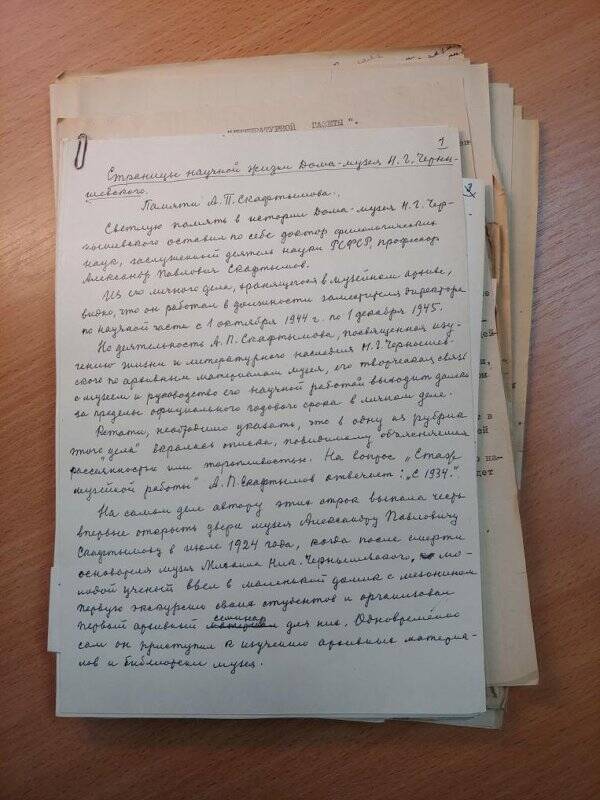 "ЛИТЕРАТУРНОЙ ГАЗЕТЫ".
1
Страницы научной жизни Дома-музея Н. Г. Черны-
шевского.
Памяти А. П. Скафтымова.
Светлую память в истории Дома-музея Н. Г. Чер-
нышевского оставил по себе доктор филологических
наук, заслуженный деятель науки РСФСР, профессор
Александр Павлович Скафтымов.
Из его личного дела, хранящегося в музейном архиве,
видно, что он работал в должности заместителя директора
по научной части с 1 октября 1944 г. по 1 декабря 1945.
Но деятельность А. П. Скафтымова, посвященная изу-
чению жизни и литературного наследия Н. Г. Чернышев-
ского по архивным материалам музея, его творческая связь
с музеем и руководство его научной работой выводит далеко
за пределы официального годового срока в личном деле.
Кстати, необходимо указать, что в одну из рубрик
этого "дела" вкралась описка, повидимому объясняемая
рассеянностью или торопливостью. На вопрос „Стаж
музейной работы" А. П. Скафтымов отвечает: „С 1934."
На самом деле автору этих строк выпала честь
впервые открыть двери музея Александру Павловичу
Скафтымову в июле 1924 года, когда после смерти
основателя музея Михаила Ник. Чернышевского, мо-
лодой ученый ввел в маленький домик с мезонином
первую экскурсию своих студентов и организовал
первый архивный семинар для них. Одновременно
сам он приступил к изучению архивных материа-
лов и библиотеки музея.